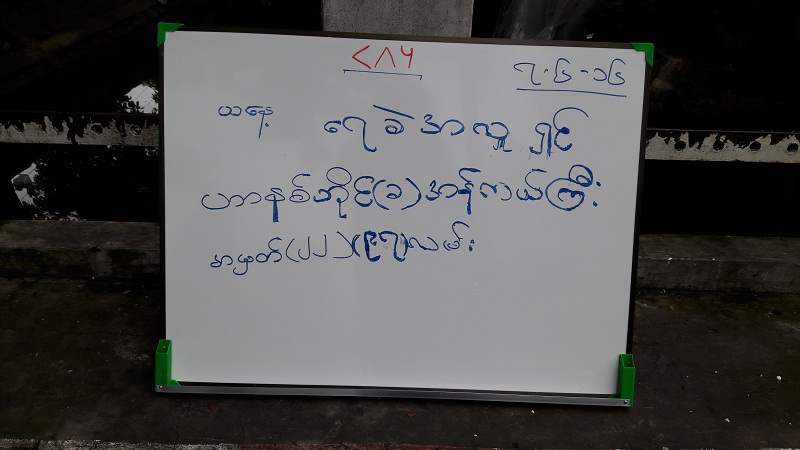 ၇၈၆
၇-၆-၁၆
ယနေ့ ရေခဲ အလှူ ရှင်
ဟာနစ်ဘိုင်(ခ)အန်ကယ်ကြီး
အမှတ်(၂၂)(၉၇)လမ်း